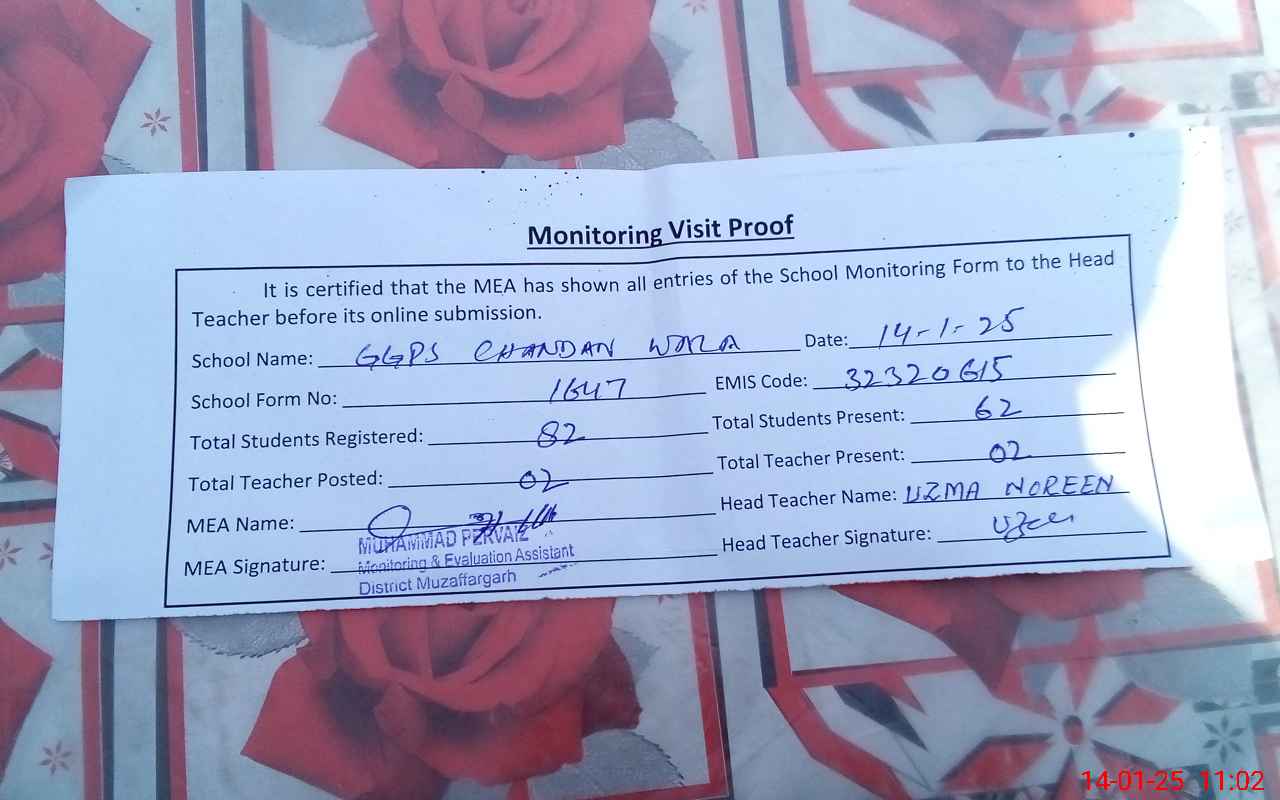 Monitoring Visit Proof
It is certified that the MEA has shown all entries of the School Monitoring Form to the Head
Teacher before its online submission.
School Name: GGPS CHANDAN WALA Date: 14-1-25
School Form No: 1647 EMIS Code: 32320615
Total Students Registered: 82 Total Students Present: 62
Total Teacher Posted: 02 Total Teacher Present: 02
MEA Name: Head Teacher Name: UZMA NOREEN
MUHAMMAD PERVAIZ
MEA Signature: Head Teacher Signature:
Monitoring & Evaluation Assistant
District Muzaffargarh
14-01-25 11:02